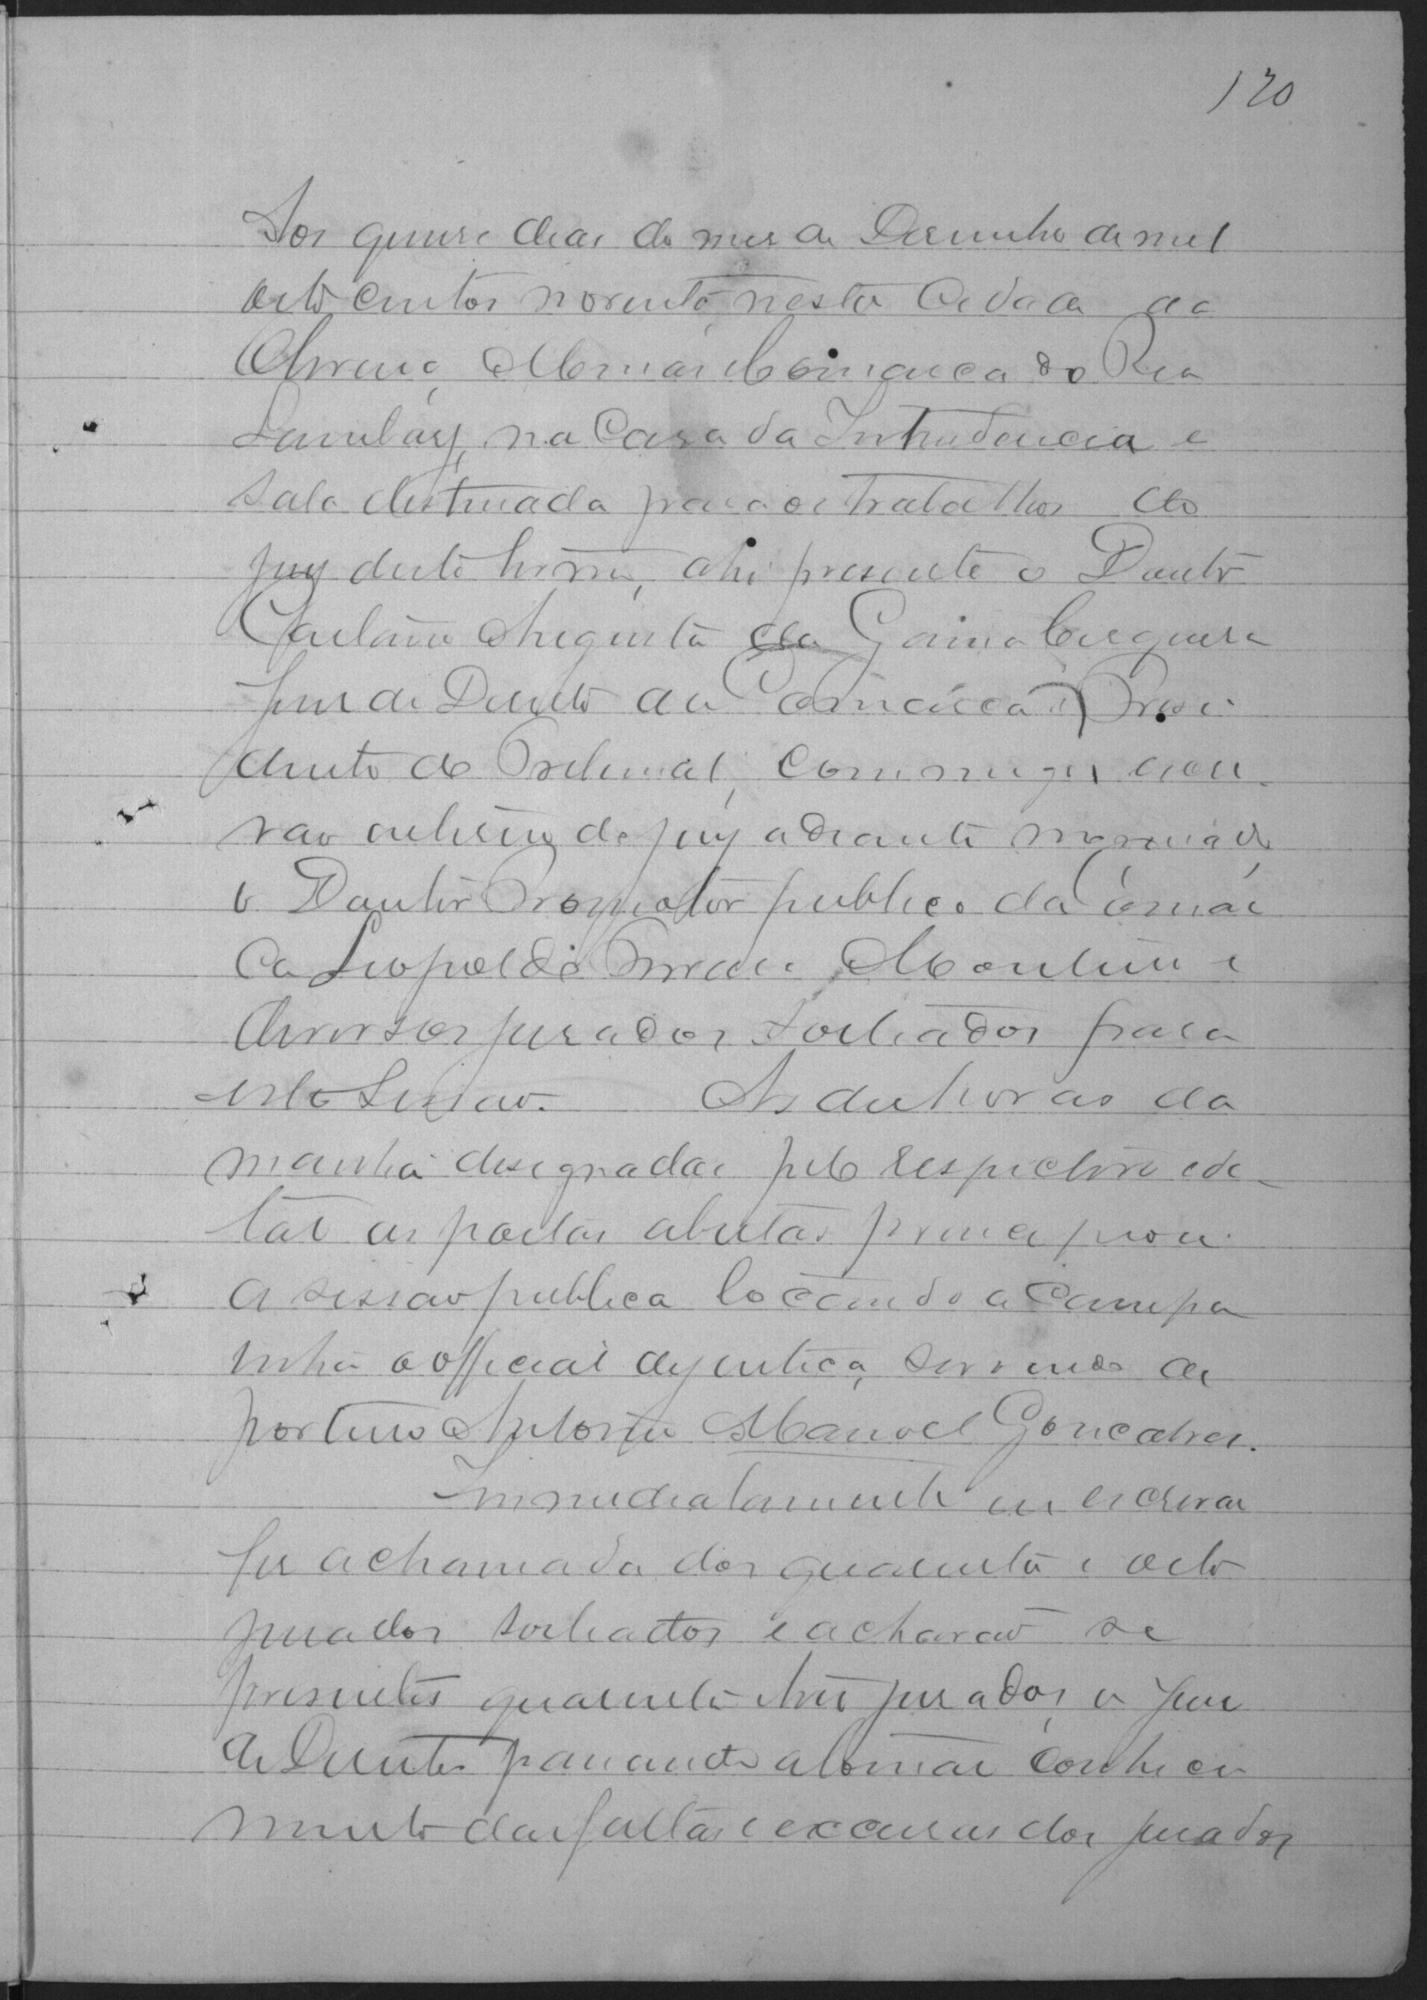 120
Aos quinze dias do mes de Dezembro de mil
oito centos noventa nesta Cidade de
Oliveira, Minas Comarca do Rio
Lambary, na Casa da Intendencia e
sala destinada para os trabalhos do
jury deste termo, ahi presente o Doutor
Caetano Augusto da Gama Cerqueira
Juiz de Direito da Comarca e Presi
dente do Tribunal, commigo escri
vão interino do jury adiante nomeado
o Doutor Promotor publico da Comar
ca Leopoldo Monteiro e
diversos jurados sorteados para
esta Sessão. As dez horas da
manhã designadas pelo respectivo edi-
tal as portas abertas principiou
a sessão publica tocando a campa
inha o official de justiça, servindo de
porteiro Antonio Manoel Gonçalves.
Immediatamente eu escrivão
fiz a chamada dos quarenta e oito
jurados sorteados e acharão se
presentes quarenta e tres jurados, o Juiz
de Direito passando a tomar conheci
mento das faltas e excusas dos jurados